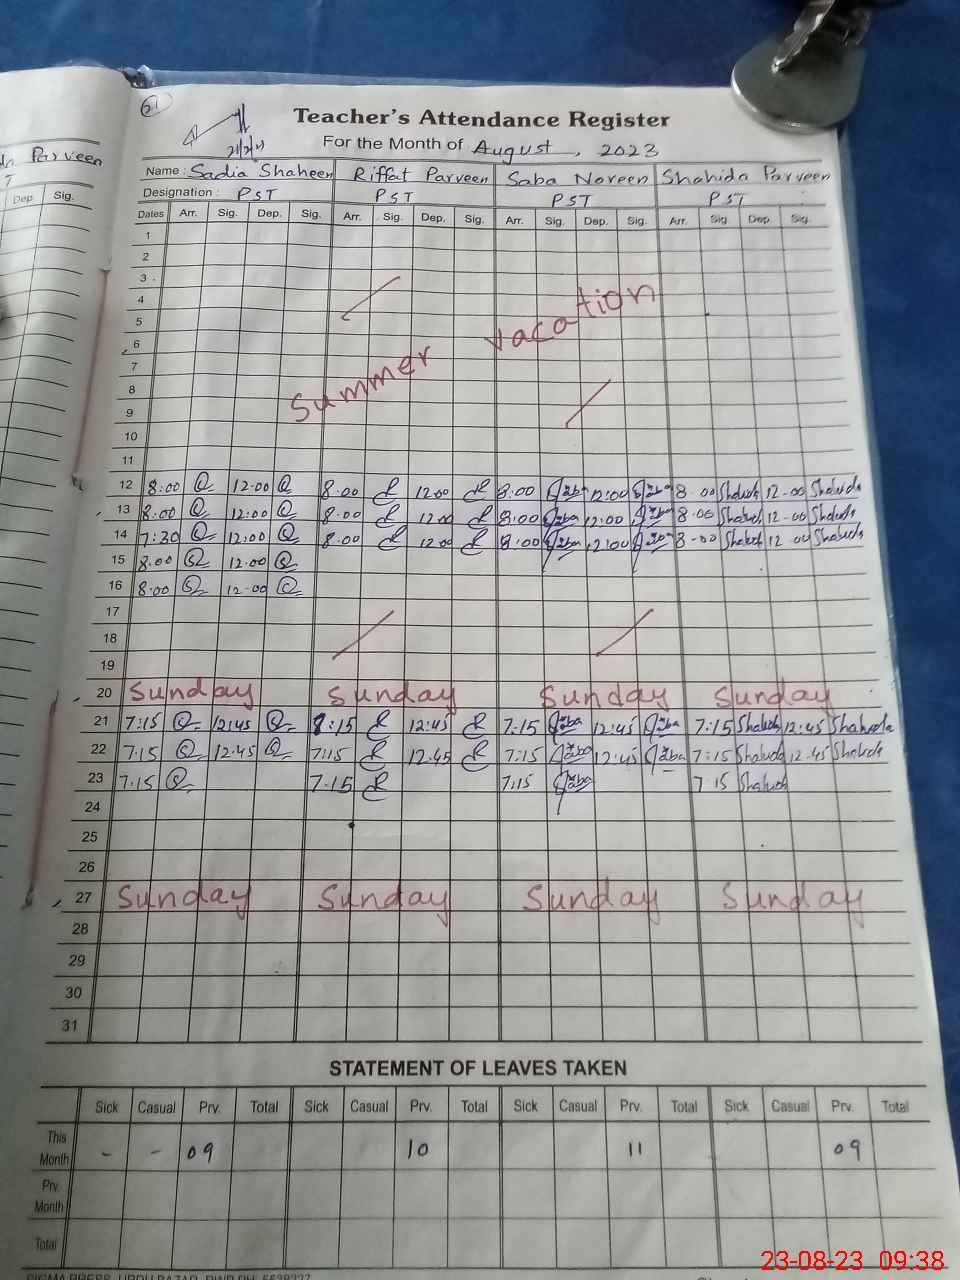 Teacher's Attendance Register
For the Month of August, 2023
Parveen
Dep. Sig.
Name: Sadia Shaheen Riffat Parveen Saba Noreen Shahida Parveen
Designation: PST PST PST PST
Dates Arr. Sig. Dep. Sig. Arr. Sig. Dep. Sig. Arr. Sig. Dep. Sig. Arr. Sig. Dep. Sig.
1
2
3
4
5
6
7
Summer vacation
8
9
10
11
12 8:00 12:00 8:00 12:00 8:00 Saba 12:00 Saba 8-00 Shahida 12-00 Shahida
13 8:00 12:00 8:00 12:00 8:00 Saba 12:00 Saba 8-00 Shahida 12-00 Shahida
14 7:30 12:00 8:00 12:00 8:00 Saba 12:00 Saba 8-00 Shahida 12-00 Shahida
15 8:00 12:00
16 8:00 12:00
17
18
19
20 Sunday Sunday Sunday Sunday
21 7:15 12:45 8:15 12:45 7:15 Saba 12:45 Saba 7:15 Shahida 12:45 Shahida
22 7:15 12:45 7:15 12:45 7:15 Saba 12:45 Saba 7:15 Shahida 12:45 Shahida
23 7:15 7:15 7:15 Saba 7:15 Shahida
24
25
26
27 Sunday Sunday Sunday Sunday
28
29
30
31
STATEMENT OF LEAVES TAKEN
Sick Casual Prv. Total Sick Casual Prv. Total Sick Casual Prv. Total Sick Casual Prv. Total
This Month - - 09 10 11 09
Prv. Month
Total
23-08-23 09:38